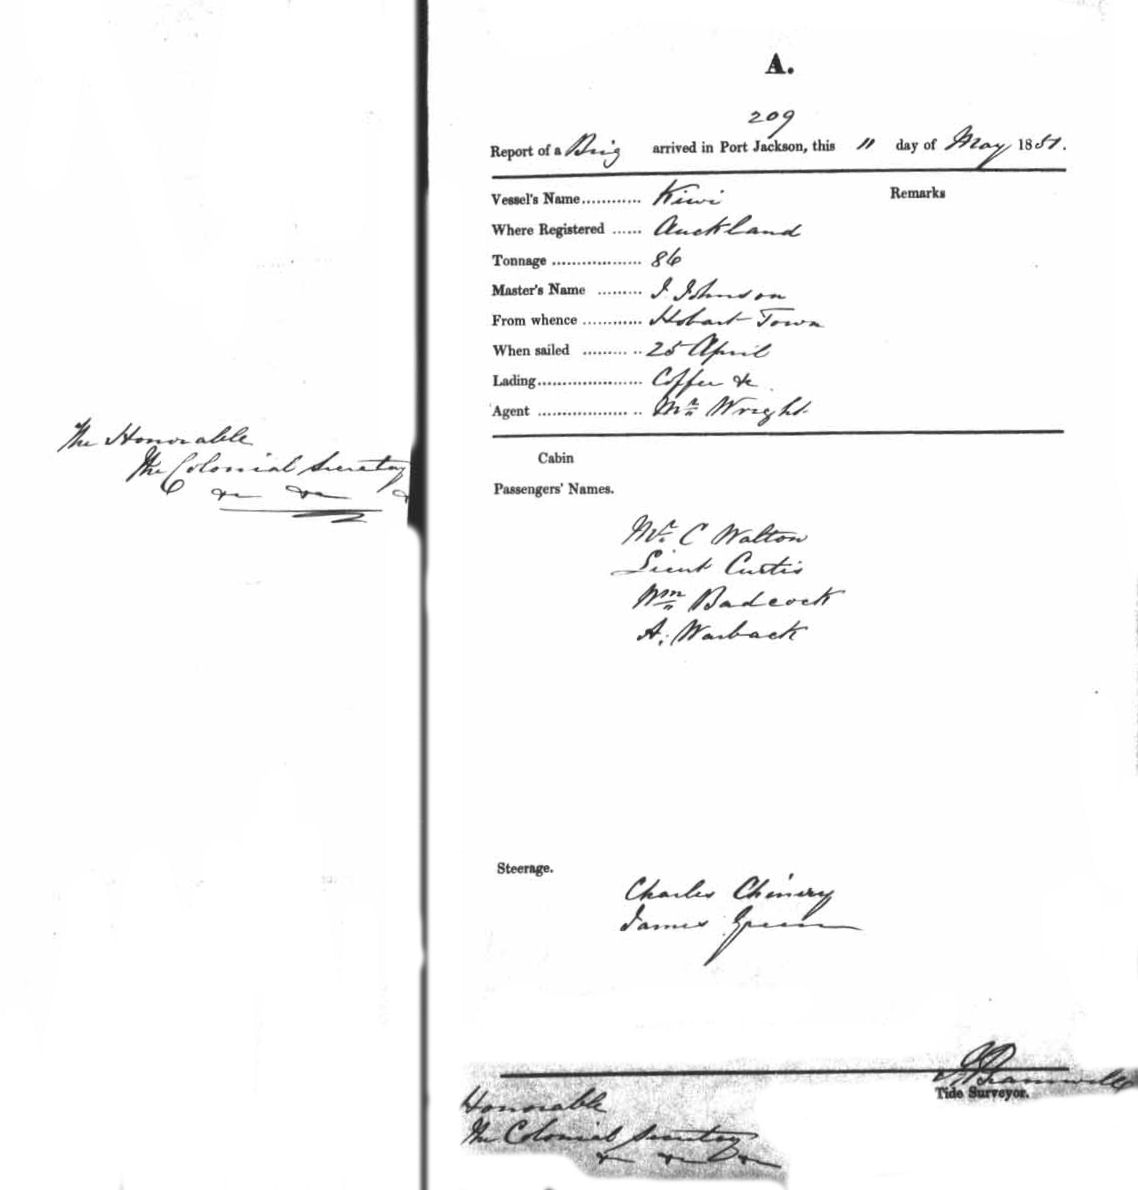 The Honorable
The Colonial Secretary
&c &c &c
A.
209
Report of a Brig arrived in Port Jackson, this 11 day of May 1851.
Vessel's Name............ Kiwi Remarks
Where Registered ...... Auckland
Tonnage .................. 86
Master's Name ......... J Johnson
From whence ............ Hobart Town
When sailed ......... .. 25 April
Lading..................... Coffee &c
Agent .................. .. Mr Wright
Cabin
Passengers' Names.
Mr. C Walton
Lieut Curtis
Wm Badcock
A. Warback
Steerage.
Charles Chinery
James Green
Tide Surveyor.
Honorable
The Colonial Secretary
&c &c &c